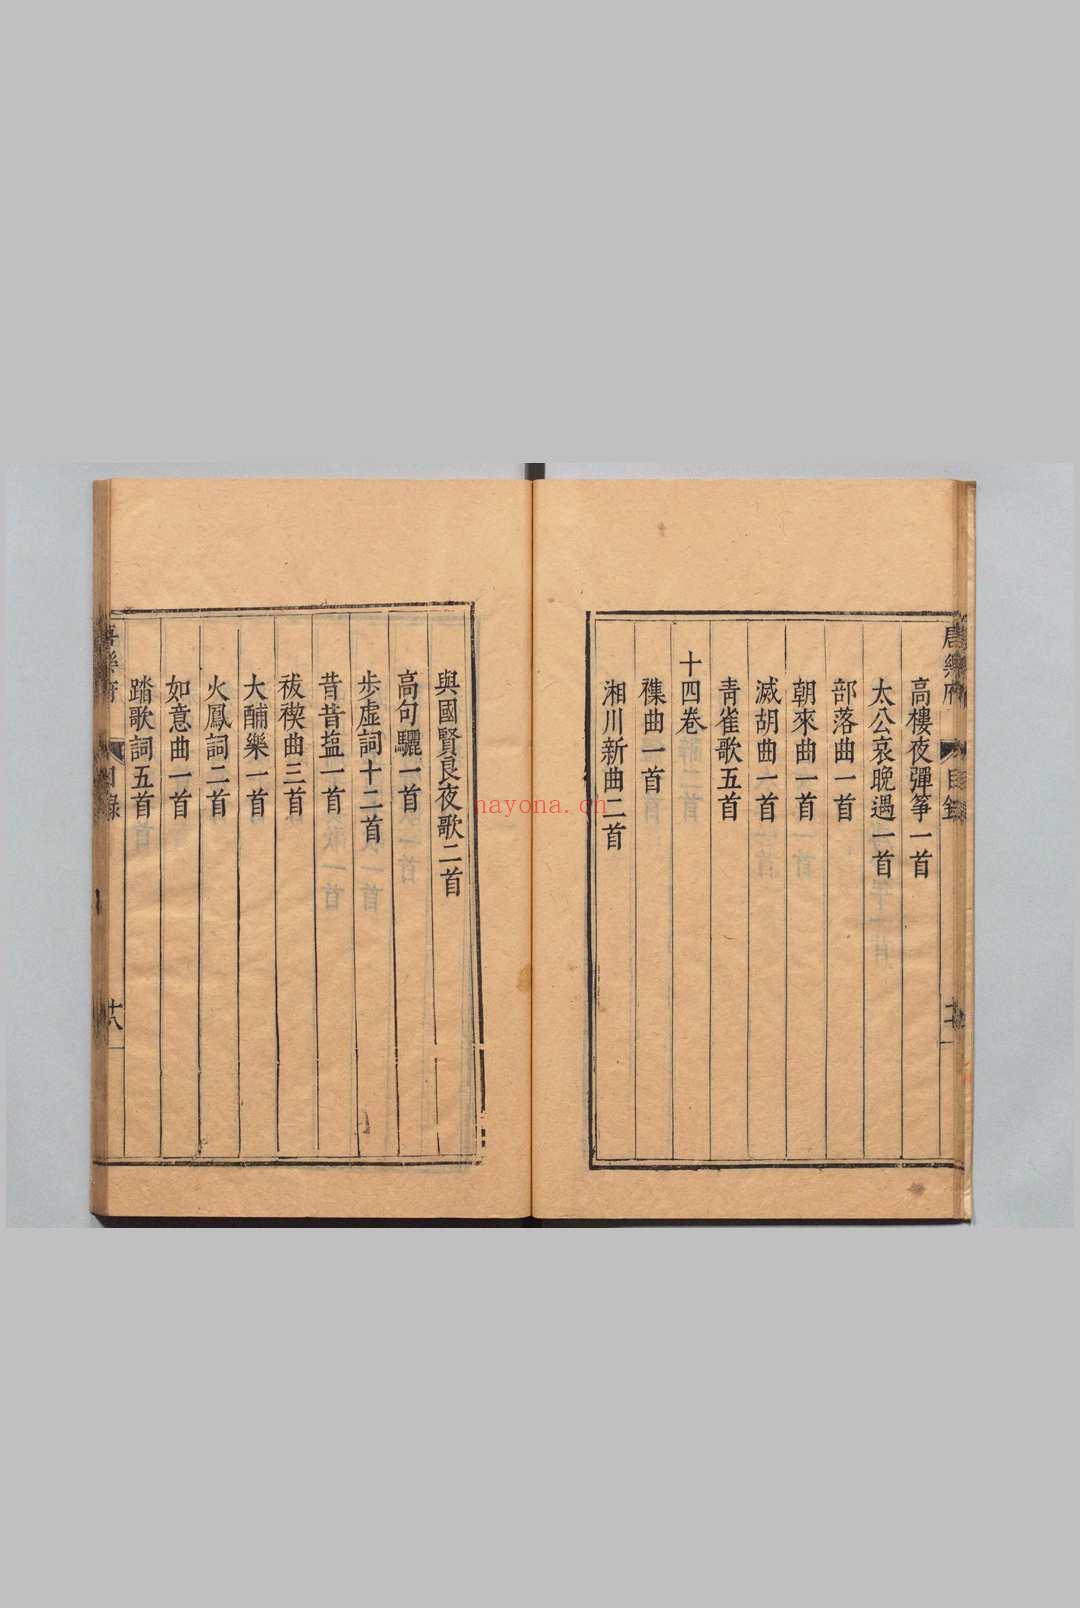 唐樂府
目錄
高樓夜彈箏一首
太公哀晚遇一首
部落曲一首
朝來曲一首
滅胡曲一首
靑雀歌五首
十四卷
襍曲一首
湘川新曲二首
與國賢良夜歌二首
高句驪一首
步虛詞十二首
昔昔塩一首
祓禊曲三首
大酺樂一首
火鳳詞二首
如意曲一首
踏歌詞五首
樂府
目錄
十八
nayona.cn